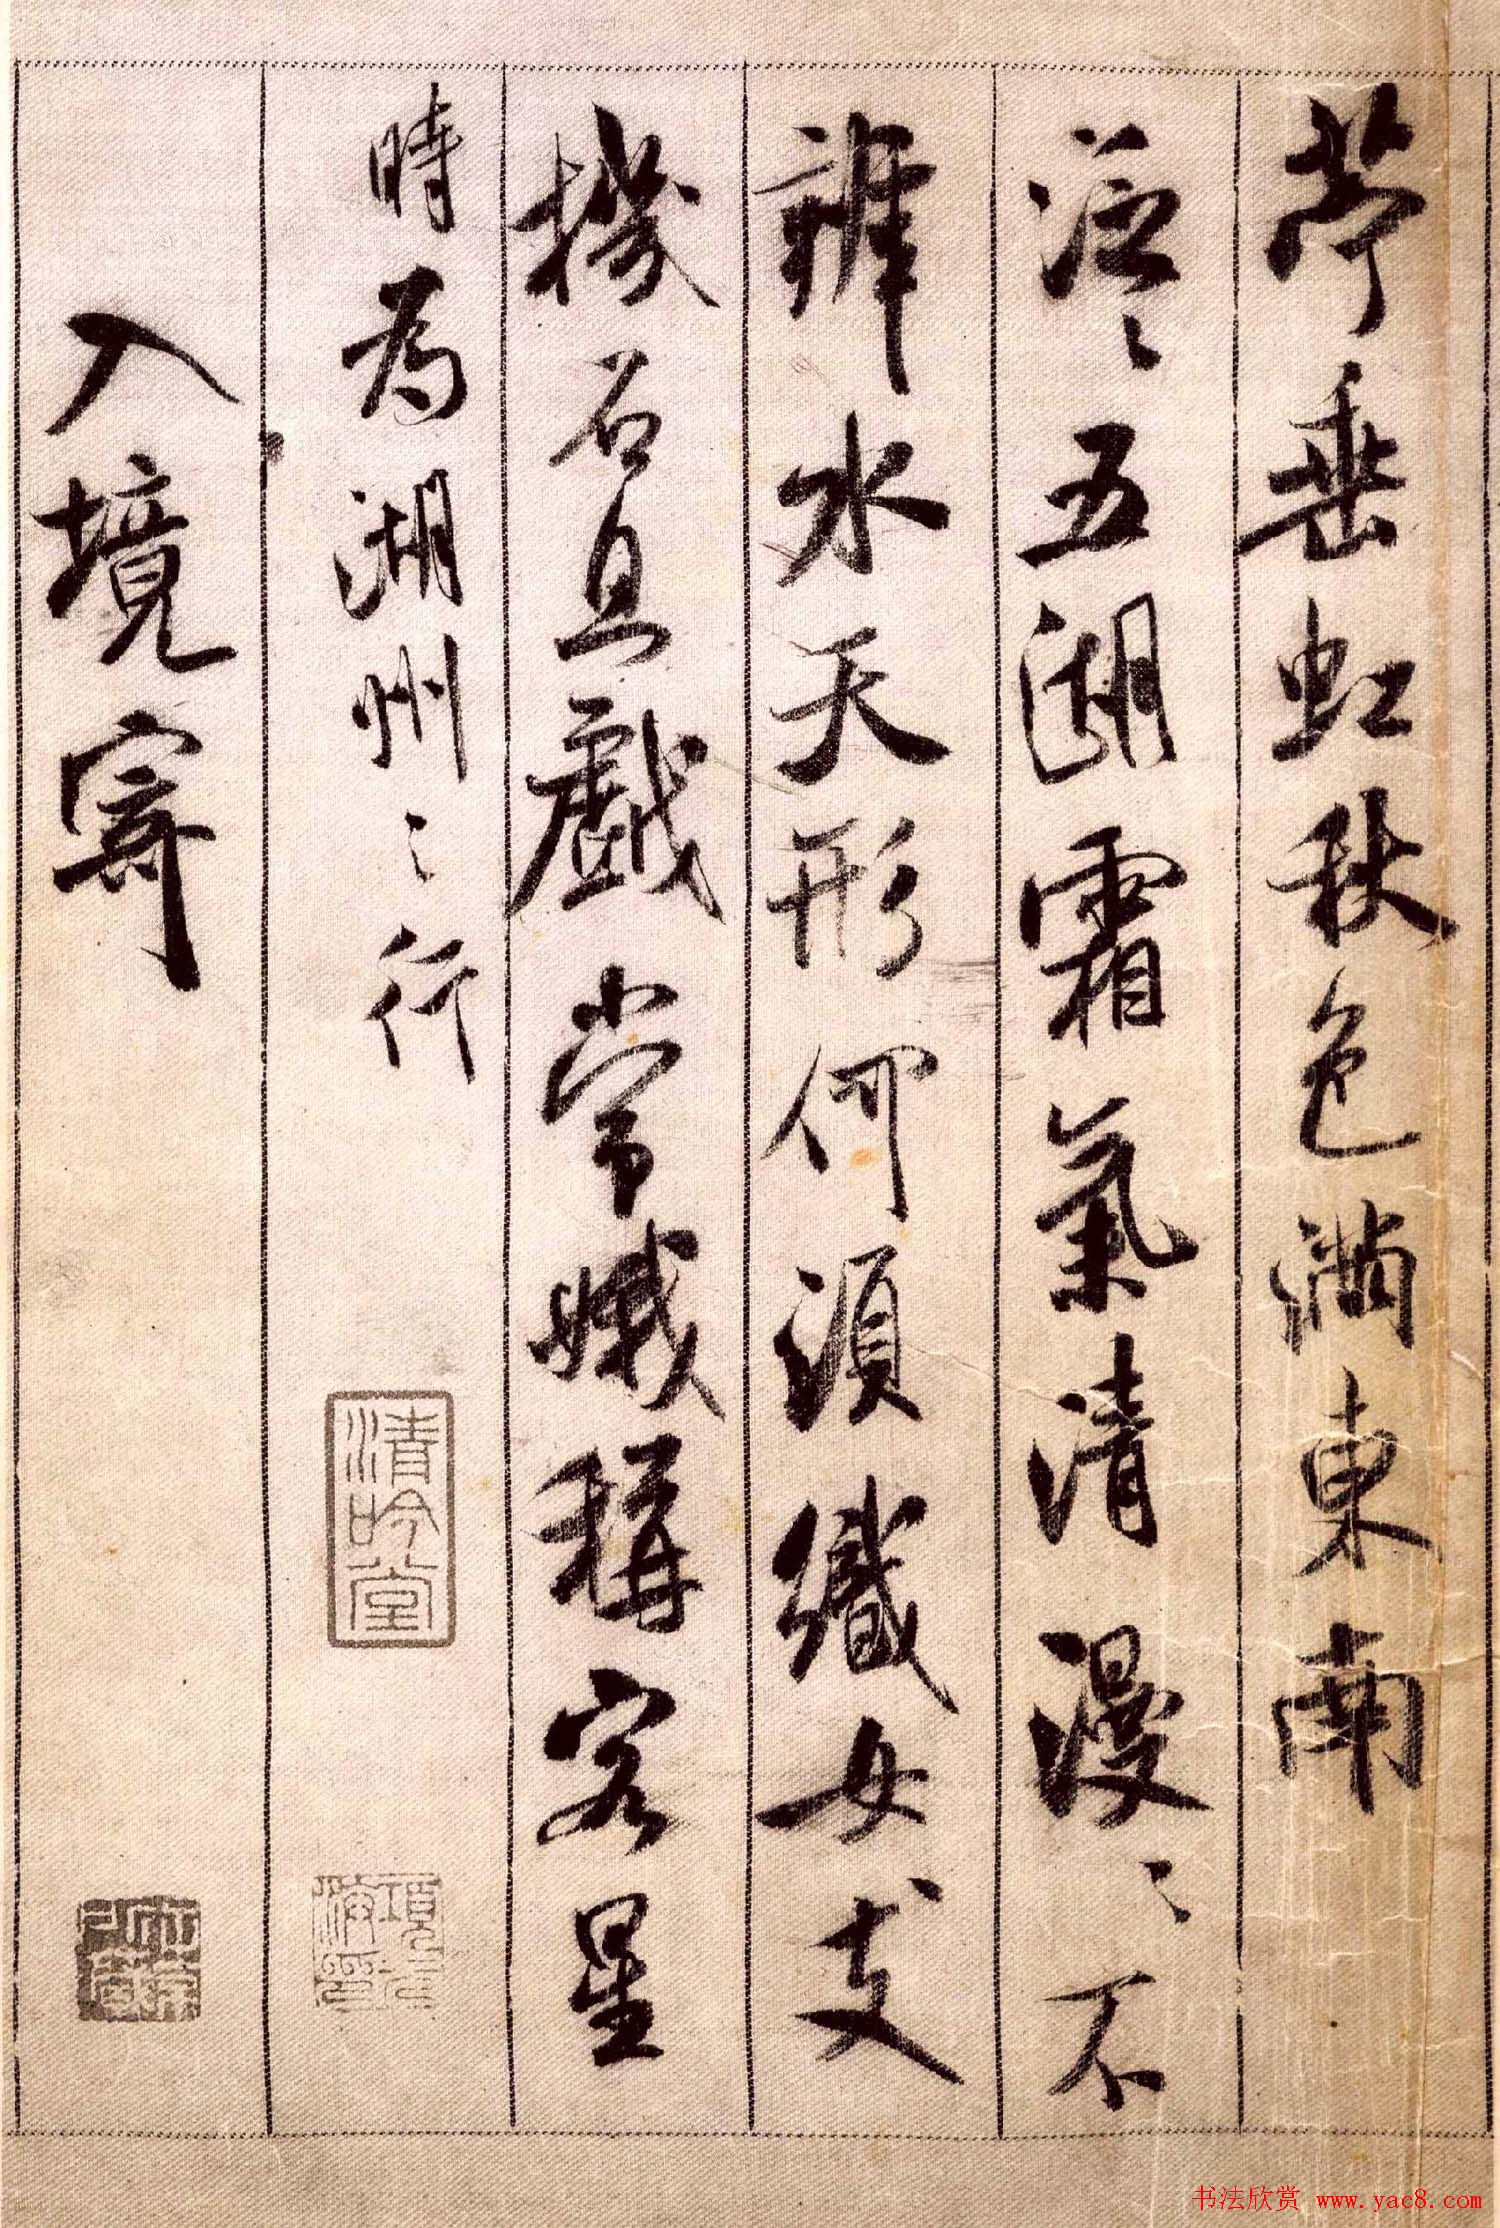 亭垂虹秋色滿東南
泛〻五湖霜氣清漫〻不
辨水天形何須織女支
機石且戲常娥稱客星
時為湖州〻行
入境寄
清吟堂
书法欣赏 www.yac8.com